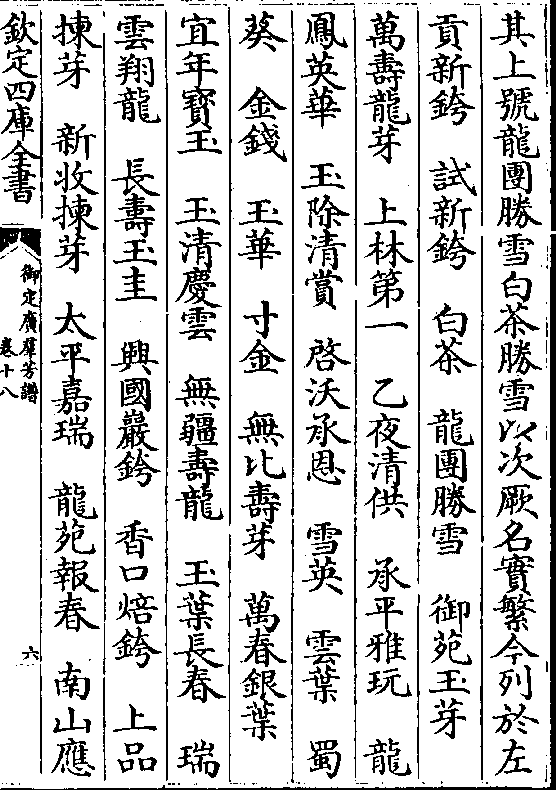 其上號龍團勝雪白茶勝雪以次厥名實繁今列於左
貢新銙　試新銙　白茶　龍團勝雪　御苑玉芽
萬壽龍芽　上林第一　乙夜清供　承平雅玩　龍
鳳英華　玉除清賞　啓沃承恩　雪英　雲葉　蜀
葵　金錢　玉華　寸金　無比壽芽　萬春銀葉
宜年寶玉　玉清慶雲　無疆壽龍　玉葉長春　瑞
雲翔龍　長壽玉圭　興國巖銙　香口焙銙　上品
揀芽　新收揀芽　太平嘉瑞　龍苑報春　南山應
欽定四庫全書
御定廣羣芳譜
卷十八
六